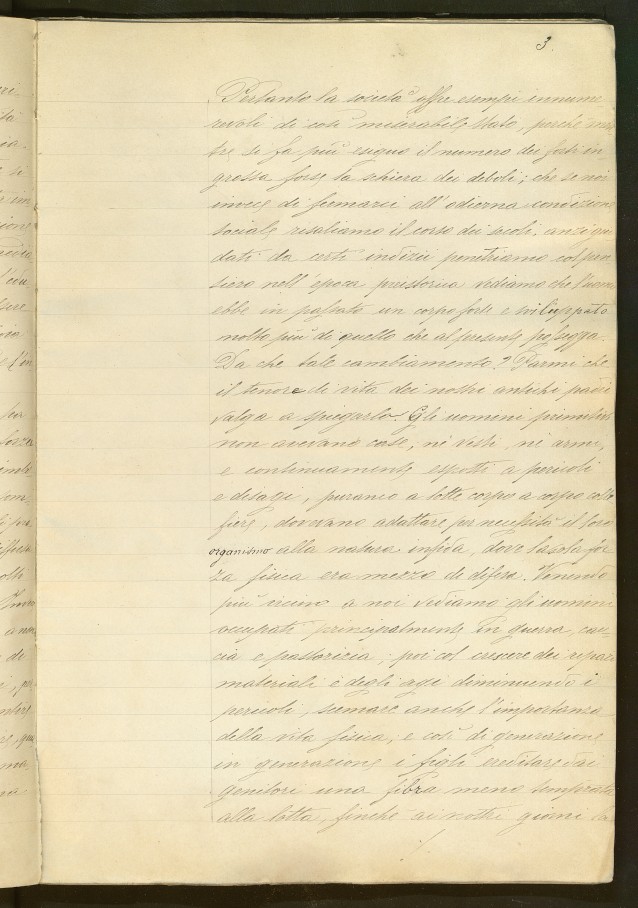 3.
Pertanto la società offre esempi innume
revoli di così miserabile stato, perchè men
tre si fa più esiguo il numero dei forti in
grossa forse la schiera dei deboli; che se noi
invece di fermarci all'odierna condizione
sociale risaliamo il corso dei secoli, anzi gui
dati da certi indizii penetriamo col pen
siero nell'epoca preistorica vediamo che l'uomo
ebbe in passato un corpo forte e sviluppato
molto più di quello che al presente possegga.
Da che tale cambiamento? Parmi che
il tenore di vita dei nostri antichi padri
valga a spiegarlo. Gli uomini primitivi
non avevano case, nè vesti, nè armi,
e continuamente esposti a pericoli
e disagi, a lotte corpo a corpo colle
fiere, dovevano adattare per necessità il loro
organismo alla natura infida, dove la sola for
za fisica era mezzo di difesa. Venendo
più vicino a noi vediamo gli uomini
occupati principalmente in guerra, cac
cia e pastorizia; poi col crescere dei ripari
materiali e degli agi diminuendo i
pericoli, scemare anche l'importanza
della vita fisica; e così di generazione
in generazione i figli ereditare dai
genitori una fibra meno temprata
alla lotta, finchè ai nostri giorni